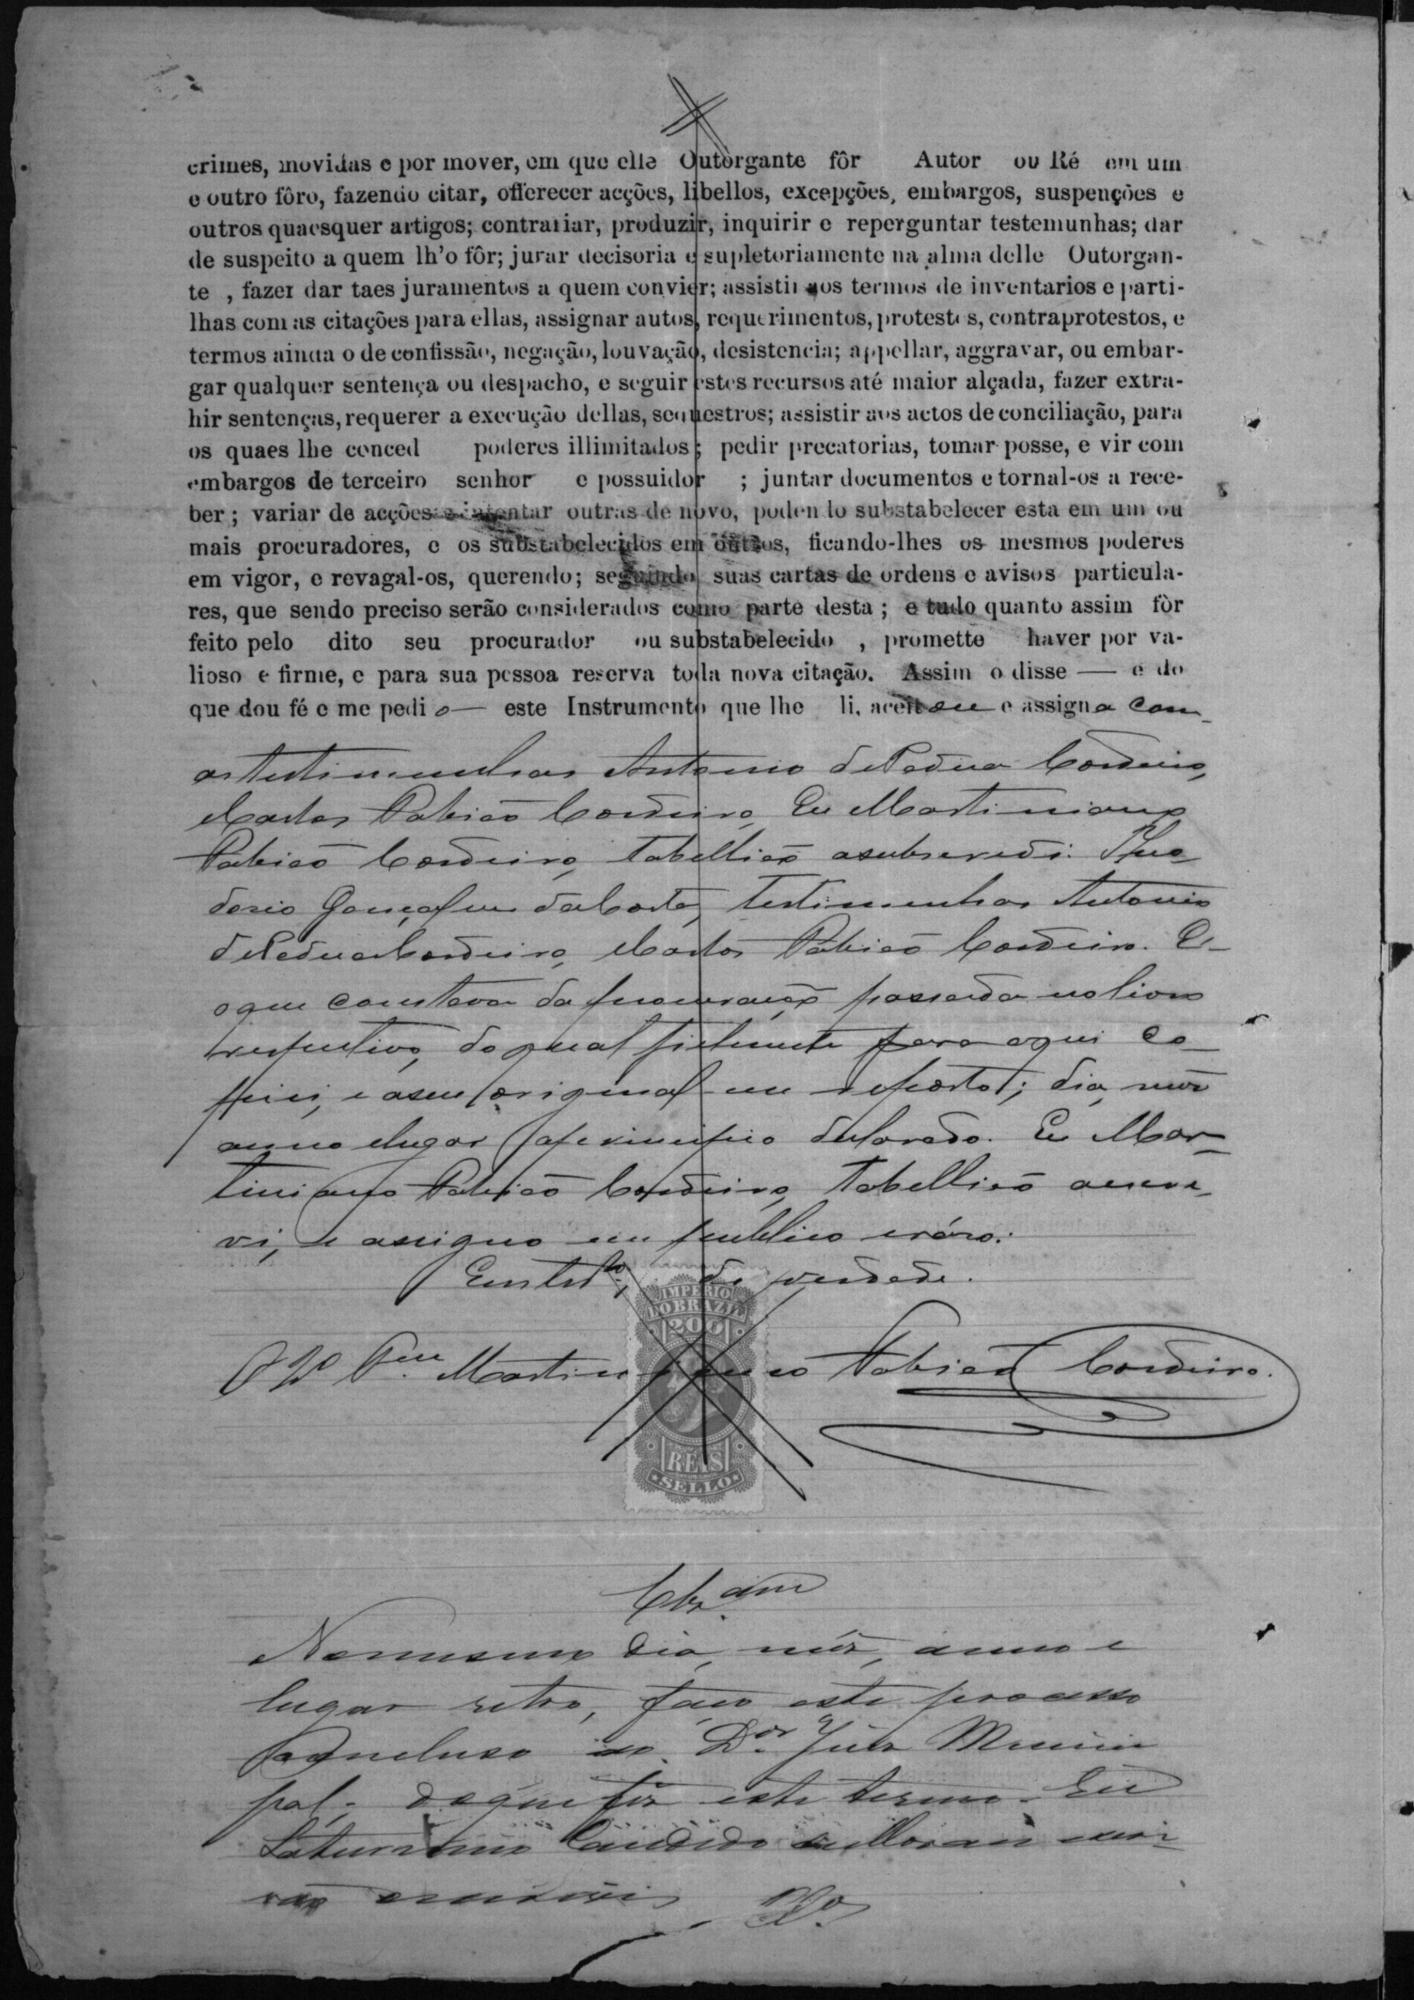 crimes, movidas e por mover, em que elle Outorgante fôr Autor ou Ré em um
e outro fôro, fazendo citar, offerecer acções, libellos, excepções, embargos, suspenções e
outros quaesquer artigos; contrariar, produzir, inquirir e reperguntar testemunhas; dar
de suspeito a quem lh'o fôr; jurar decisoria e supletoriamente na alma delle Outorgan-
te , fazer dar taes juramentos a quem convier; assistir aos termos de inventarios e parti-
lhas com as citações para ellas, assignar autos, requerimentos, protestos, contraprotestos, e
termos ainda o de confissão, negação, louvação, desistencia; appellar, aggravar, ou embar-
gar qualquer sentença ou despacho, e seguir estes recursos até maior alçada, fazer extra-
hir sentenças, requerer a execução dellas, sequestros; assistir aos actos de conciliação, para
os quaes lhe conced poderes illimitados; pedir precatorias, tomar posse, e vir com
embargos de terceiro senhor e possuidor ; juntar documentos e tornal-os a rece-
ber; variar de acções e intentar outras de novo, podendo substabelecer esta em um ou
mais procuradores, e os substabelecidos em outros, ficando-lhes os mesmos poderes
em vigor, e revagal-os, querendo; seguindo suas cartas de ordens e avisos particula-
res, que sendo preciso serão considerados como parte desta; e tudo quanto assim fôr
feito pelo dito seu procurador ou substabelecido , promette haver por va-
lioso e firme, e para sua pessoa reserva toda nova citação. Assim o disse — e do
que dou fé e me pedio — este Instrumento que lhe li, aceitou e assigna com
as testimunhas Antonio de Padua Cordeiro,
Carlos Fabião Cordeiro, Eu Martiniano
Fabião Cordeiro, tabellião a subscrevi.
Gonçalves da Costa, testimunhas Antonio
de Padua Cordeiro, Carlos Fabião Cordeiro. E
o que constava da procuração passada no livro
respectivo, do qual fielmente para aqui co-
piei, e a seu original me reporto; dia, mez
anno e lugar a principio declarado. Eu Mar-
tiniano Fabião Cordeiro, Tabellião escre-
vi, e assigno em publico e razo.
Em testo. de verdade.
IMPERIO
DO BRAZIL
200
REIS
SELLO
Martiniano Fabião Cordeiro.
Clzam
No mesmo dia, mez, anno e
lugar retro, faço este processo
concluso ao Dor. Juiz Munici
pal; do que fiz este termo. Eu
Saturnino Candido de Moraes escri-
vão escrevi